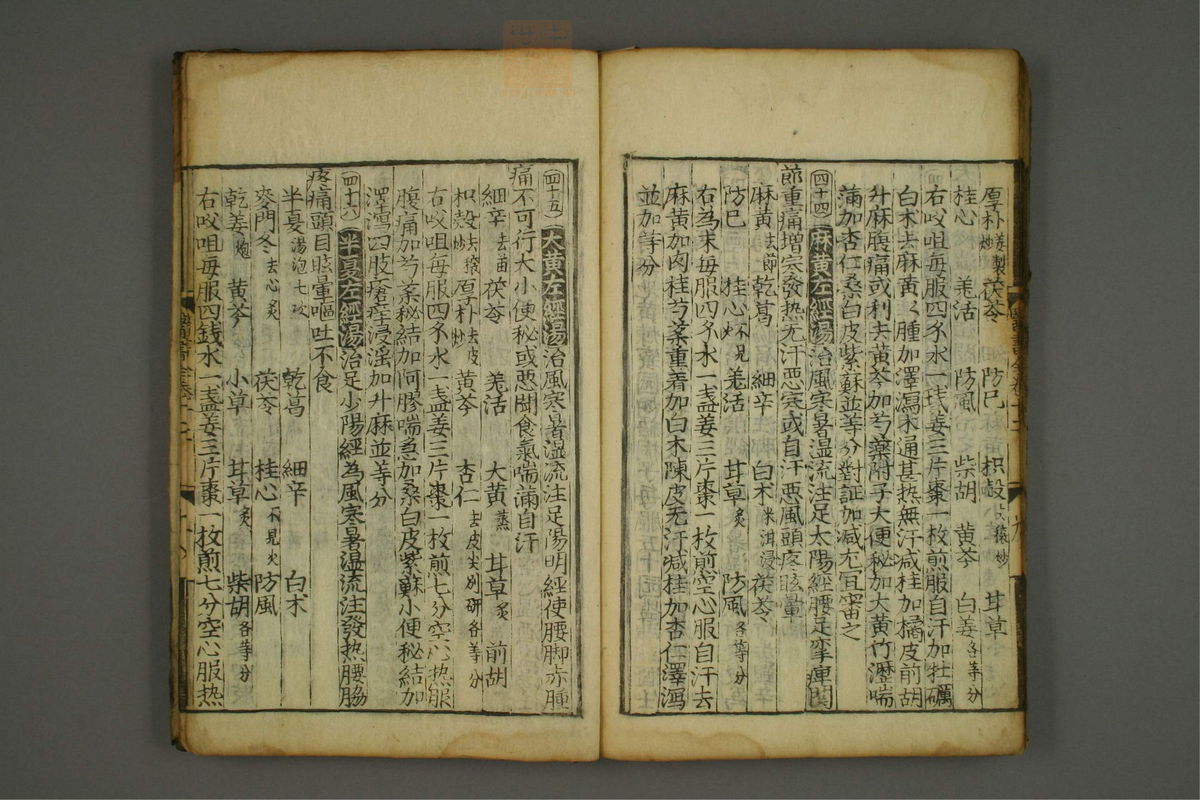 厚朴姜製炒 茯苓 防巳 枳殼去穰炒 甘草
桂心 羗活 防風 柴胡 黄芩 白姜各等分
右㕮咀每服四錢水一盞姜三片棗一枚煎服自汗加牡礪
白朮去麻黄黄腫加澤瀉木通甚热無汗减桂加橘皮前胡
升麻腹痛或利去黄芩加芍藥附子大便秘加大黄竹瀝喘
滿加杏仁桑白皮紫蘇並等分對証加减尤宜審之
四十四 麻黄左經湯 治風寒暑湿流注足太陽經腰足挛痺関
節重痛增寒發热无汗惡寒或自汗惡風頭疼眩暈
麻黄去節 乾葛 細辛 白朮米泔浸 茯苓
防巳 桂心不見火 羗活 甘草炙 防風各等分
右為末每服四錢水一盞姜三片棗一枚煎空心服自汗去
麻黄加肉桂芍藥重着加白朮陳皮无汗减桂加杏仁澤瀉
並加等分
四十五 大黄左經湯 治風寒暑湿流注足陽明經使腰脚赤腫
痛不可行大小便秘或惡聞食氣喘滿自汗
細辛去苗 茯苓 羗活 大黄蒸 甘草炙 前胡
枳殼去穰炒 厚朴去皮炒 黄芩 杏仁去皮尖别研各等分
右㕮咀每服四錢水一盞姜三片棗一枚煎七分空心热服
腹痛加芍藥秘結加阿膠喘急加桑白皮紫蘇小便秘結加
澤瀉四肢瘡痒浸淫加升麻並等分
四十六 半夏左經湯 治足少陽經為風寒暑湿流注發热腰脇
疼痛頭目眩暈嘔吐不食
半夏湯泡七次 乾葛 細辛 白朮
麥門冬去心炙 茯苓 桂心不見火 防風
乾姜炮 黄芩 小草 甘草炙 柴胡各等分
右㕮咀每服四錢水一盞姜三片棗一枚煎七分空心服热